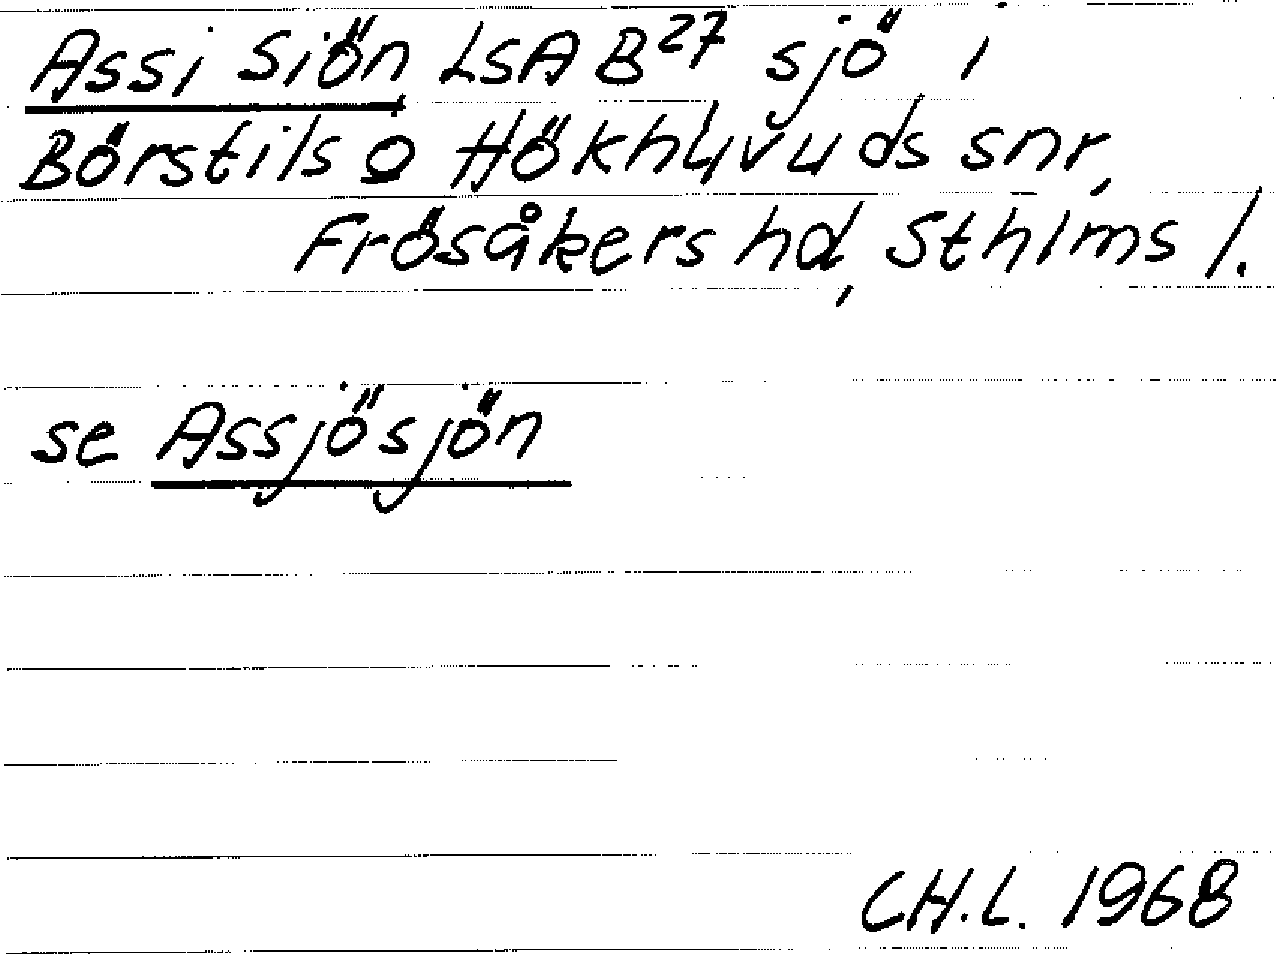 Assi Siön LSA B27 sjö i
Börstils o Hökhuvuds snr,
Frösåkers hd, Sthlms l.
se Assjösjön
CH.L. 1968